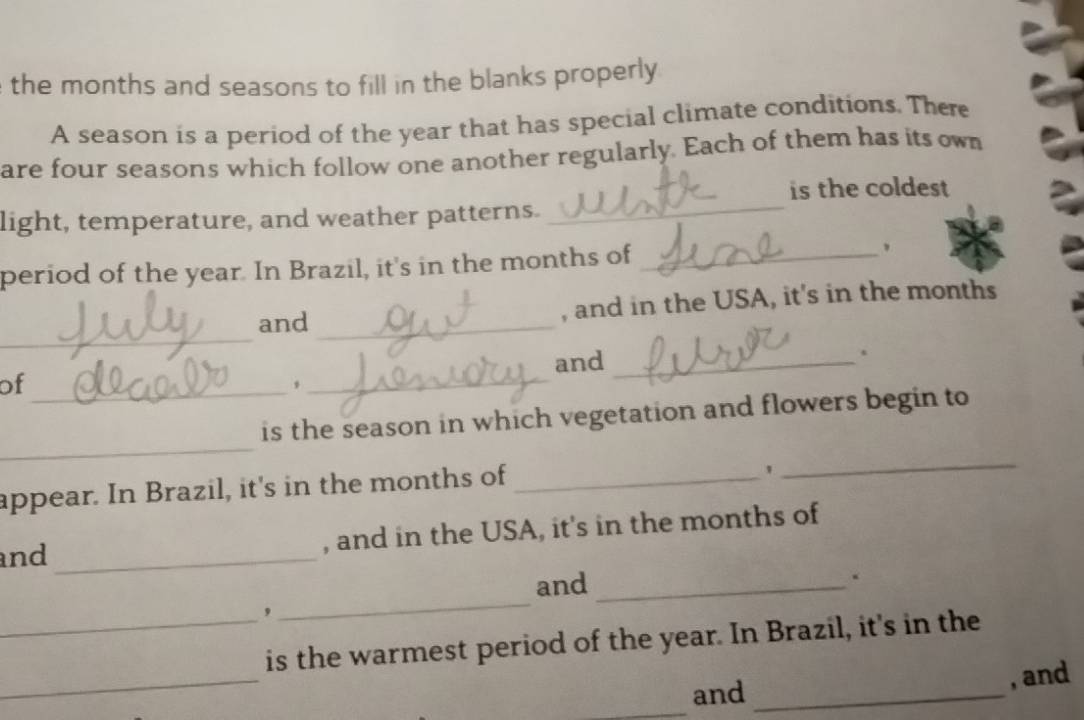 the months and seasons to fill in the blanks properly.
A season is a period of the year that has special climate conditions. There
are four seasons which follow one another regularly. Each of them has its own
light, temperature, and weather patterns. is the coldest
period of the year. In Brazil, it's in the months of June,
July and , and in the USA, it's in the months
of , and .
is the season in which vegetation and flowers begin to
appear. In Brazil, it's in the months of ,
and , and in the USA, it's in the months of
, and .
is the warmest period of the year. In Brazil, it's in the
and , and